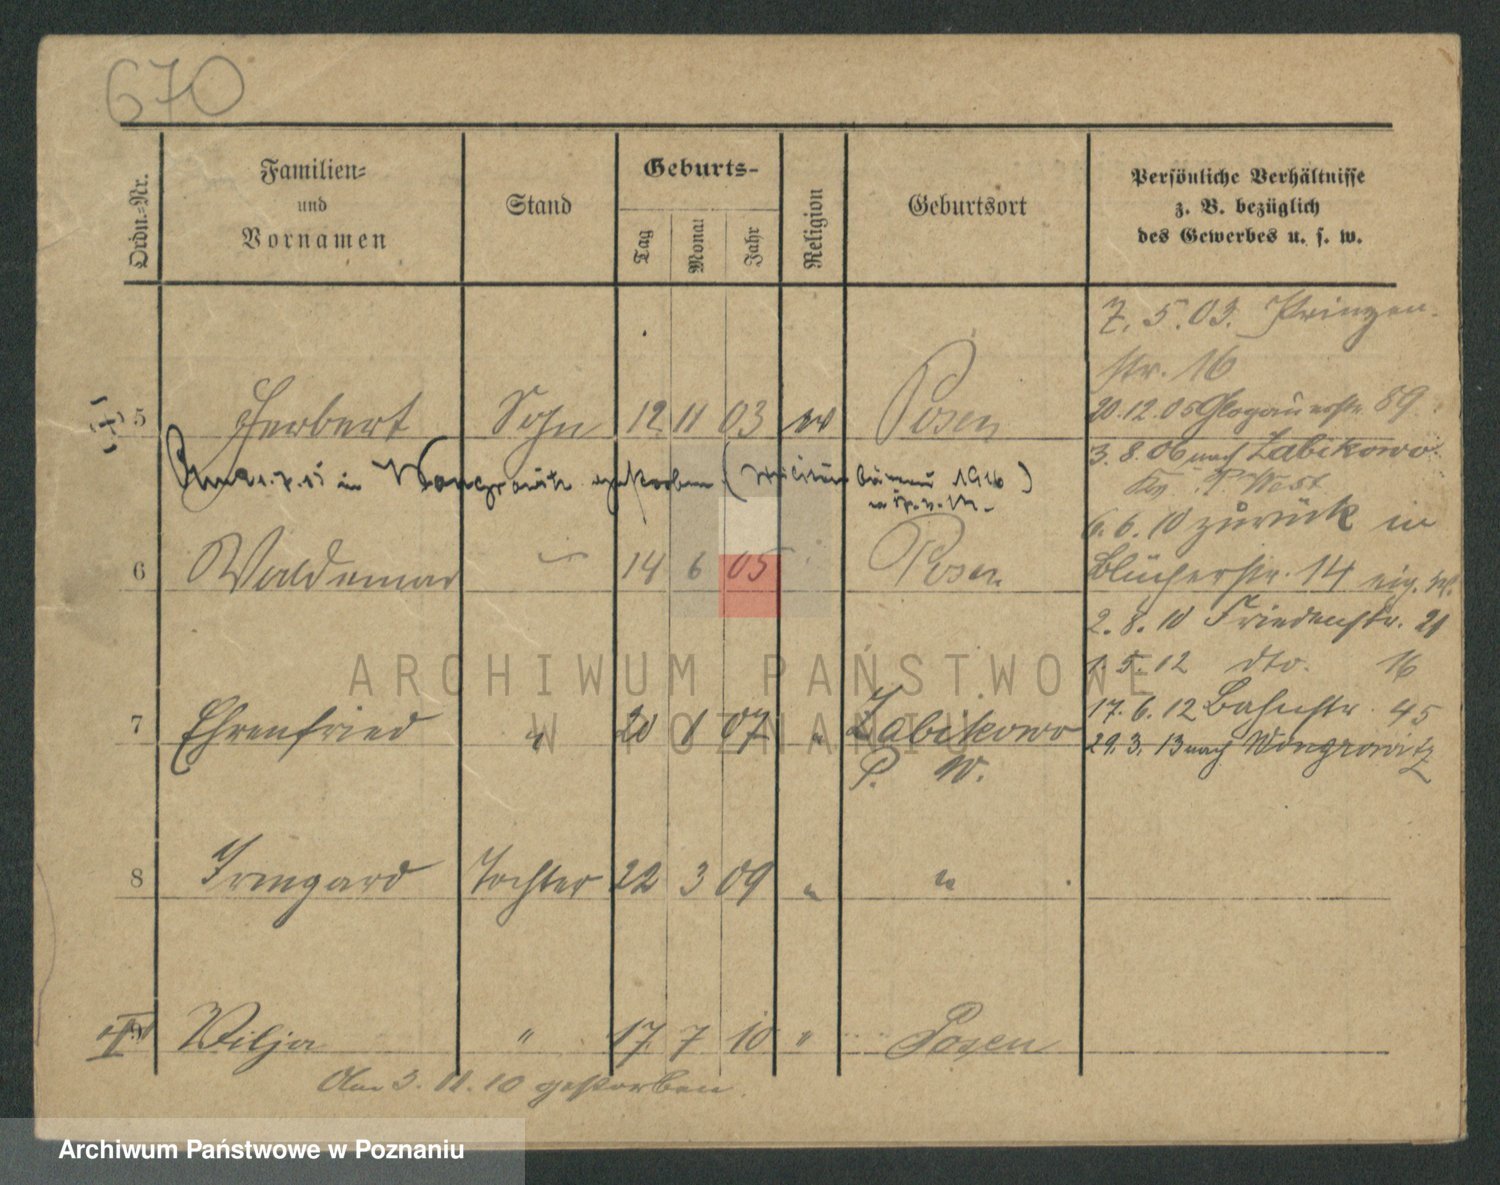 670
Ordn.=Nr.
Familien=
und
Vornamen
Stand
Geburts-
Tag
Monat
Jahr
Religion
Geburtsort
Persönliche Verhältnisse
z. B. bezüglich
des Gewerbes u. s. w.
7. 5. 03. Prinzen-
str. 16
5 Herbert Sohn 12 11 03 ev Posen
20.12.05 Glogauerstr. 89
3. 8. 06 nach Zabikowo
P. West
Am in Wongrowitz gestorben ( 1916 )
6 Waldemar 14 6 05 Posen
6. 6. 10 zurück in
Blücherstr. 14 eig. W.
2. 8. 10 Friedenstr. 21
1. 5. 12 dto. 16
7 Ehrenfried " 20 1 07 " Zabikowo
P. W.
17. 6. 12 Bahnstr. 45
29. 3. 13 nach Wongrowitz
8 Irmgard Tochter 22 3 09 " "
Wilja " 17 7 10 " Posen
Am 3. 11. 10 gestorben.
ARCHIWUM PAŃSTWOWE
W POZNANIU
Archiwum Państwowe w Poznaniu